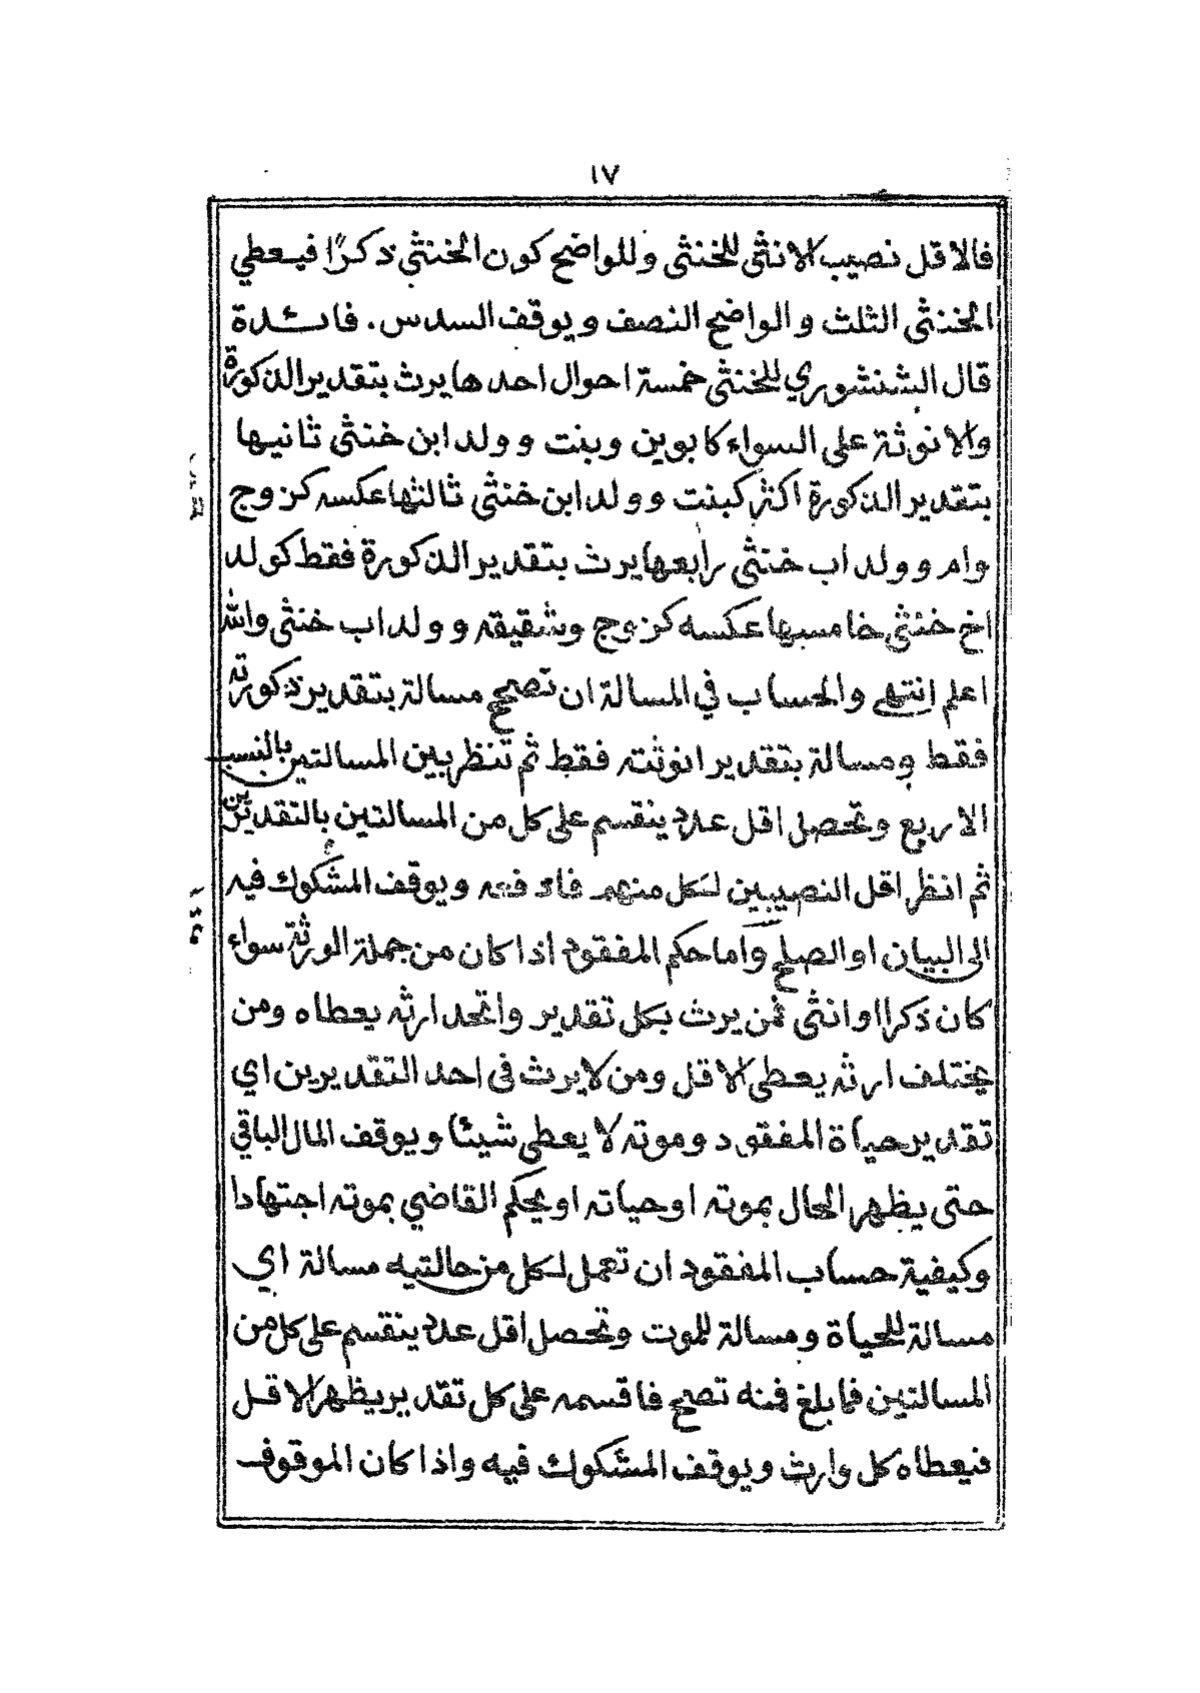 ١٧
فالاقل نصيب الانثى للخنثى وللواضح كون الخنثى ذكرًا فيعطي
الخنثى الثلث والواضح النصف ويوقف السدس. فائدة
قال الشنشوري للخنثى خمسة احوال احدها يرث بتقدير الذكورة
والانوثة على السواء كابوين وبنت وولد ابن خنثى ثانيها
بتقدير الذكورة اكثر كبنت وولد ابن خنثى ثالثها عكسه كزوج
وام وولد اب خنثى رابعها يرث بتقدير الذكورة فقط كولد
اخ خنثى خامسها عكسه كزوج وشقيقه وولد اب خنثى والله
اعلم انتهى والحساب في المسالة ان تصحح مسالة بتقدير ذكورته
فقط ومسالة بتقدير انوثته فقط ثم تنظر بين المسالتين بالنسب
الاربع وتحصل اقل عدد ينقسم على كل من المسالتين بالتقديرين
ثم انظر اقل النصيبين لكل منهم فادفعه ويوقف المشكوك فيه
الى البيان او الصلح واما حكم المفقود اذا كان من جملة الورثة سواء
كان ذكرا او انثى فمن يرث بكل تقدير واتحد ارثه يعطاه ومن
يختلف ارثه يعطى الاقل ومن لا يرث فى احد التقديرين اي
تقدير حياة المفقود وموته لا يعطى شيئا ويوقف المال الباقي
حتى يظهر الحال بموته او حياته او يحكم القاضي بموته اجتهادا
وكيفية حساب المفقود ان تعمل لكل من حالتيه مسالة اي
مسالة للحياة ومسالة للموت وتحصل اقل عدد ينقسم على كل من
المسالتين فما بلغ فمنه تصح فاقسمه على كل تقدير يظهر الاقل
فيعطاه كل وارث ويوقف المشكوك فيه واذا كان الموقوف